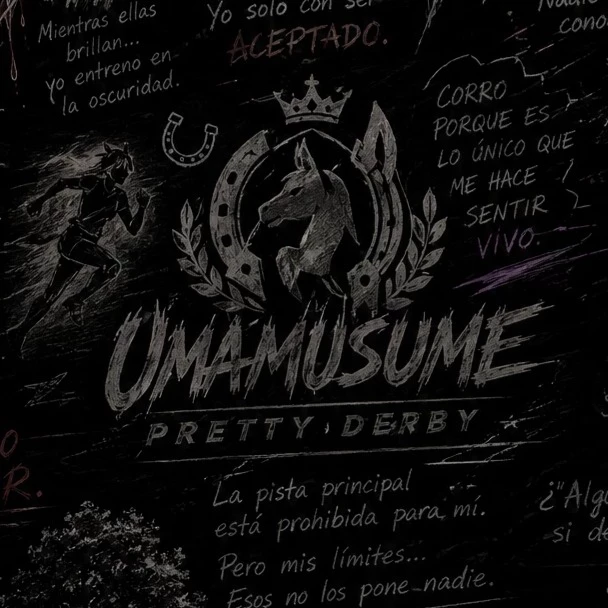 Mientras ellas
brillan...
yo entreno en
la oscuridad.
Yo solo con ser
ACEPTADO.
Nadie
cono
CORRO
PORQUE ES
LO ÚNICO QUE
ME HACE
SENTIR
VIVO.
UMAMUSUME
PRETTY DERBY
O
R.
La pista principal
está prohibida para mí.
Pero mis límites...
Esos no los pone nadie.
¿"Alg
si de